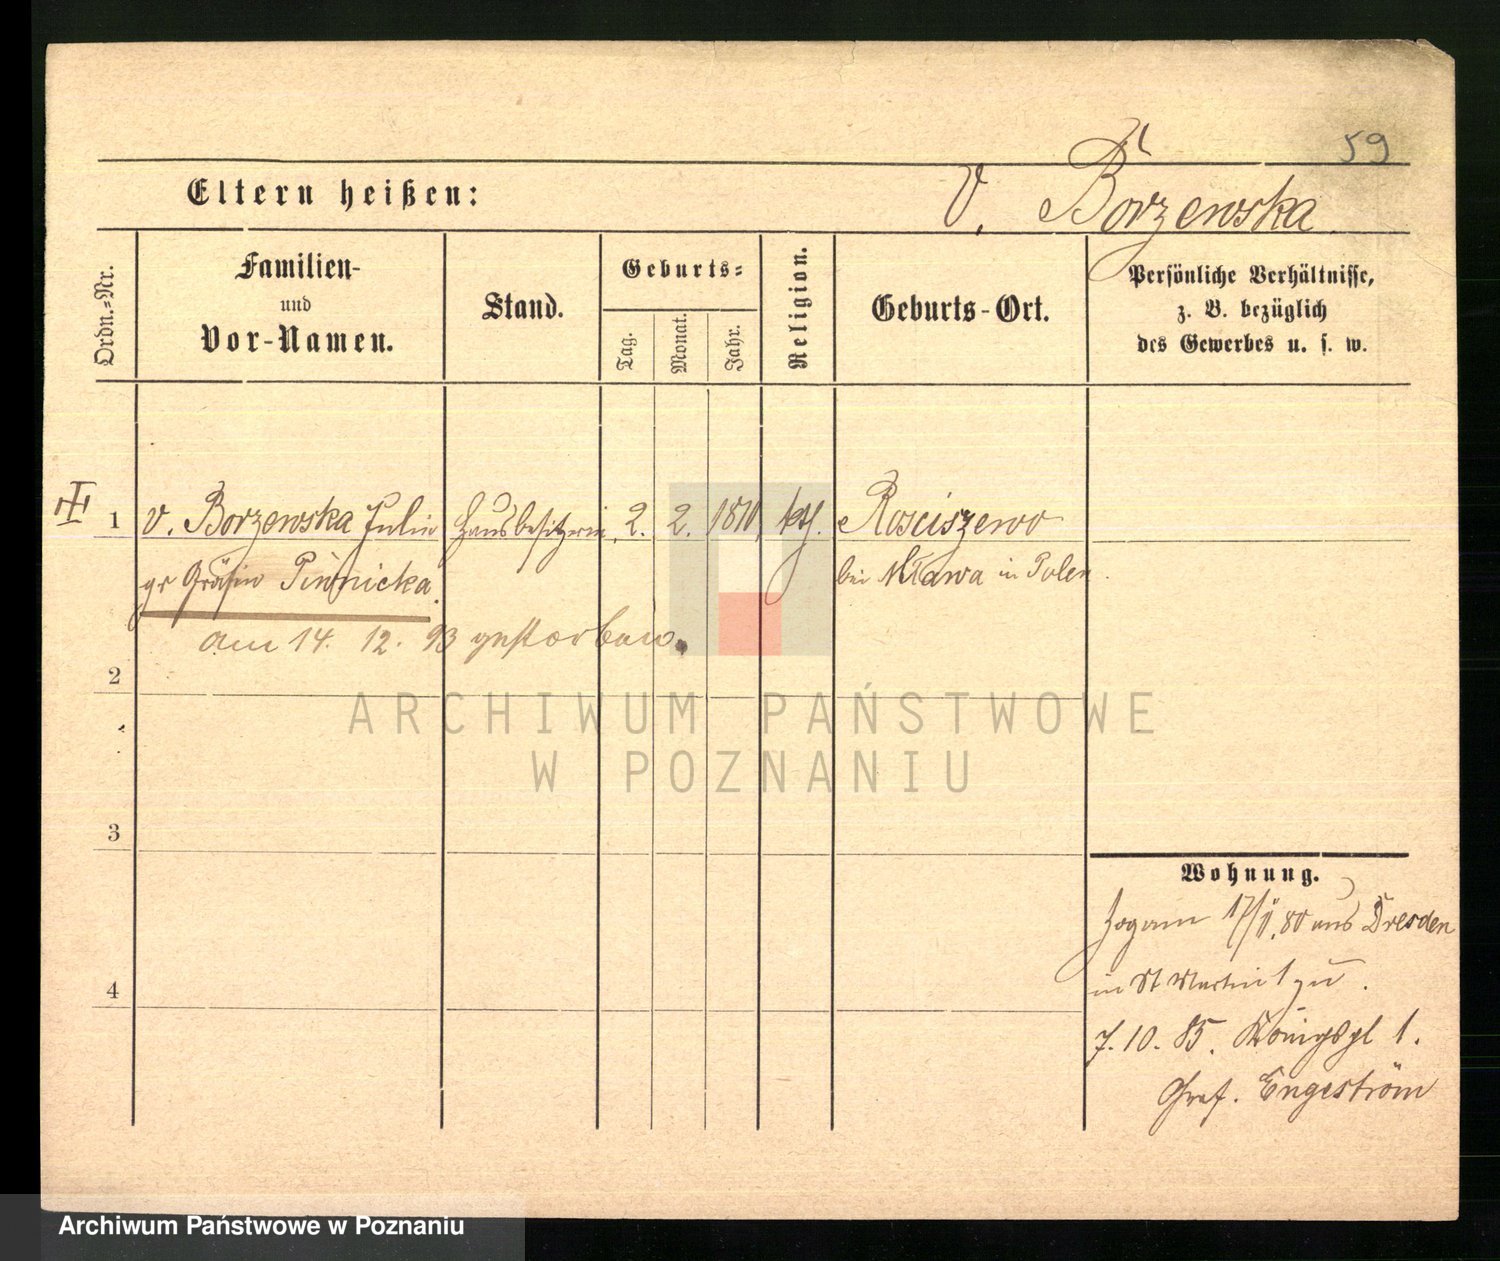 59
Eltern heißen:
v. Borzewska.
Ordn.-Nr.
Familien-
und
Vor-Namen.
Stand.
Geburts-
Tag.
Monat.
Jahr.
Religion.
Geburts-Ort.
Persönliche Verhältnisse,
z. B. bezüglich
des Gewerbes u. s. w.
1 v. Borzewska Julie Hausbesitzerin 2. 2. 1810 kth. Rosciszewo
Gräfin bei Mława in Polen.
am 14. 12. 93 gestorben.
2
3
4
Wohnung.
Zog am 17/V. 80 aus Dresden
in St Martin 1 zu.
7. 10. 85. Königspl 1.
Graf. Engeström
ARCHIWUM PAŃSTWOWE
W POZNANIU
Archiwum Państwowe w Poznaniu